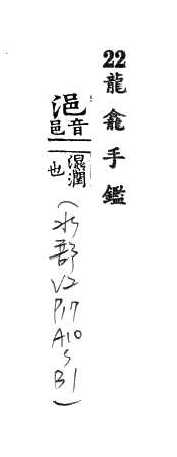 22龍龕手鑑
浥音邑濕潤也(水部V2P17A10SB1)